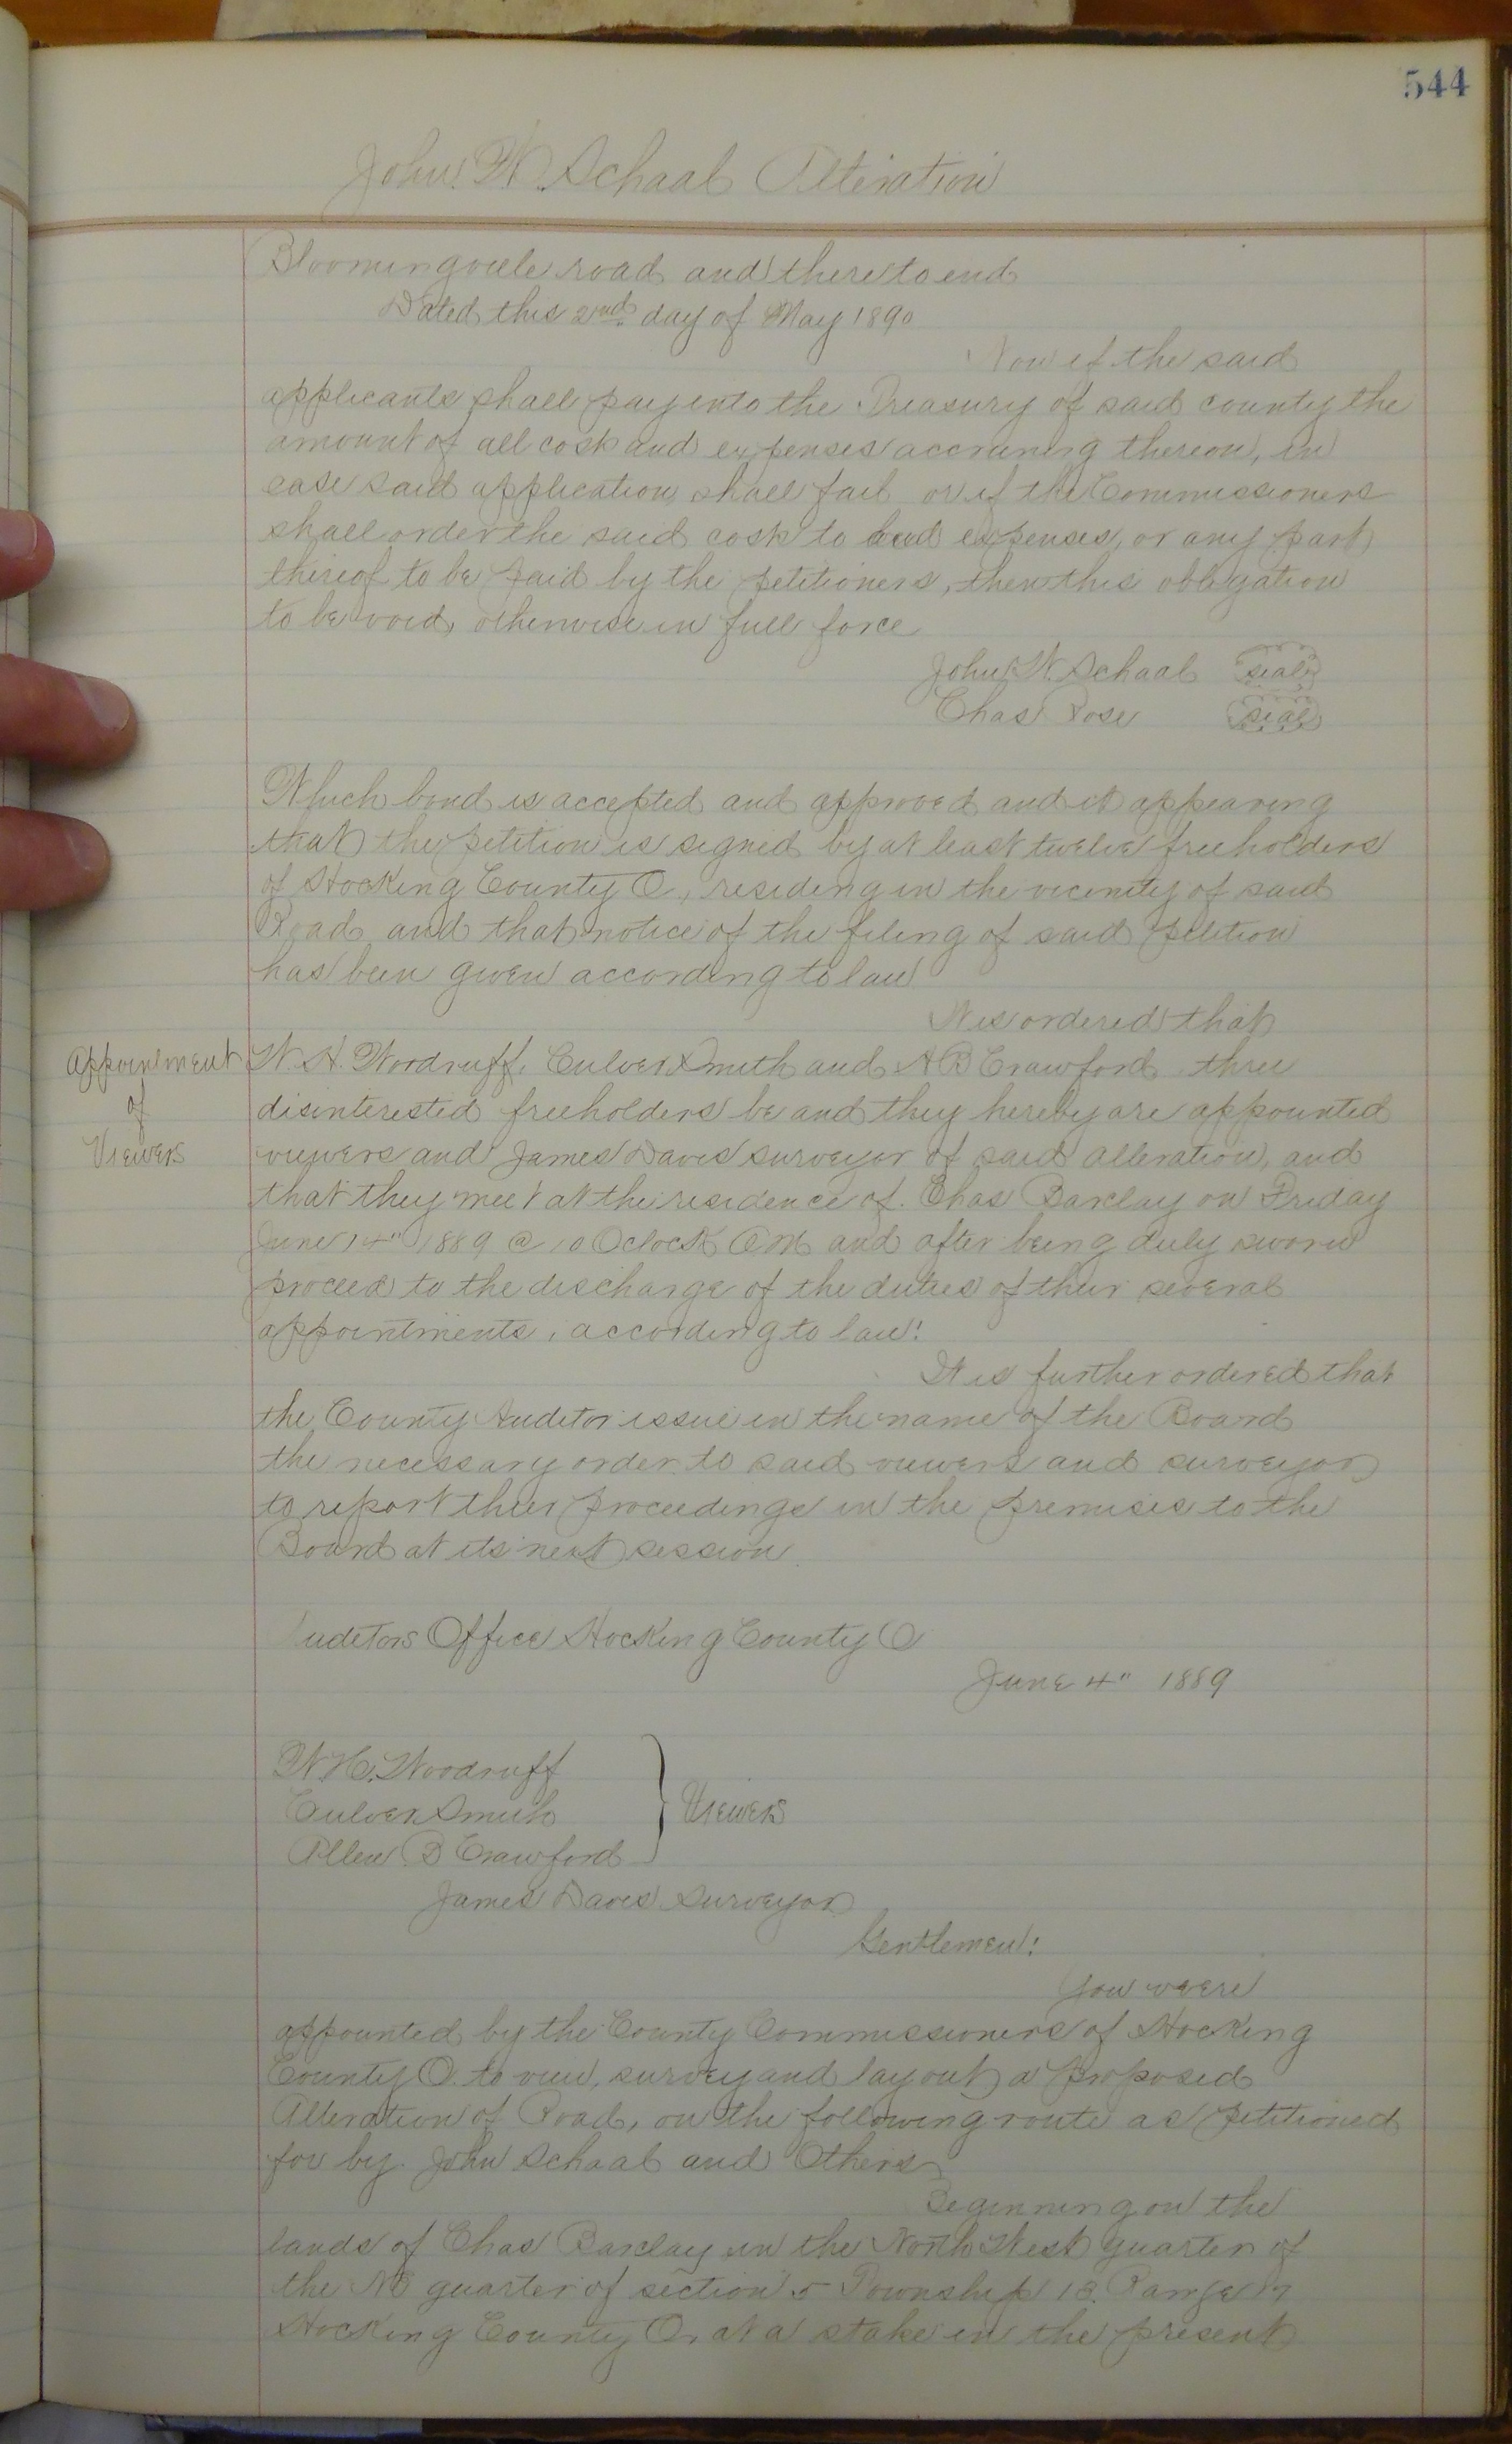 544
John W. Schaal Alteration
Bloomingville road and there to end
Dated this 2nd day of May 1890
Now if the said
applicants shall pay into the Treasury of said county the
amount of all cost and expenses accruing thereon, in
case said application shall fail or if the Commissioners
shall order the said cost to and expenses, or any part
thereof to be paid by the petitioners, then this obligation
to be void, otherwise in full force
John W. Schaal seal
Chas Rose seal
Which bond is accepted and approved and it appearing
that the petition is signed by at least twelve freeholders
of Hocking County O., residing in the vicinity of said
Road and that notice of the filing of said petition
has been given according to law
It is ordered that
Appointment
of
Viewers
W. H. Woodruff, Culver Smith and A B Crawford three
disinterested freeholders be and they hereby are appointed
viewers and James Davis surveyor of said alteration, and
that they meet at the residence of. Chas Barclay on Friday
June 14" 1889 @ 10 Oclock AM and after being duly sworn
proceed to the discharge of the duties of their several
appointments, according to law!
It is further ordered that
the County Auditor issue in the name of the Board
the necessary order to said viewers and surveyor
to report thier proceedings in the premises to the
Board at its next session
Auditors Office Hocking County O
June 4" 1889
W. H. Woodruff
Culver Smith
Allen B Crawford
Viewers
James Davis Surveyor
Gentlemen!
You were
appointed by the County Commissioners of Hocking
County O. to view, survey and lay out a proposed
Alteration of Road, on the following route as petitioned
for by. John Schaal and Others
Beginning on the
lands of Chas Barclay in the North West quarter of
the NE quarter of section 5 Township 13. Range 17
Hocking County O, at a stake in the present